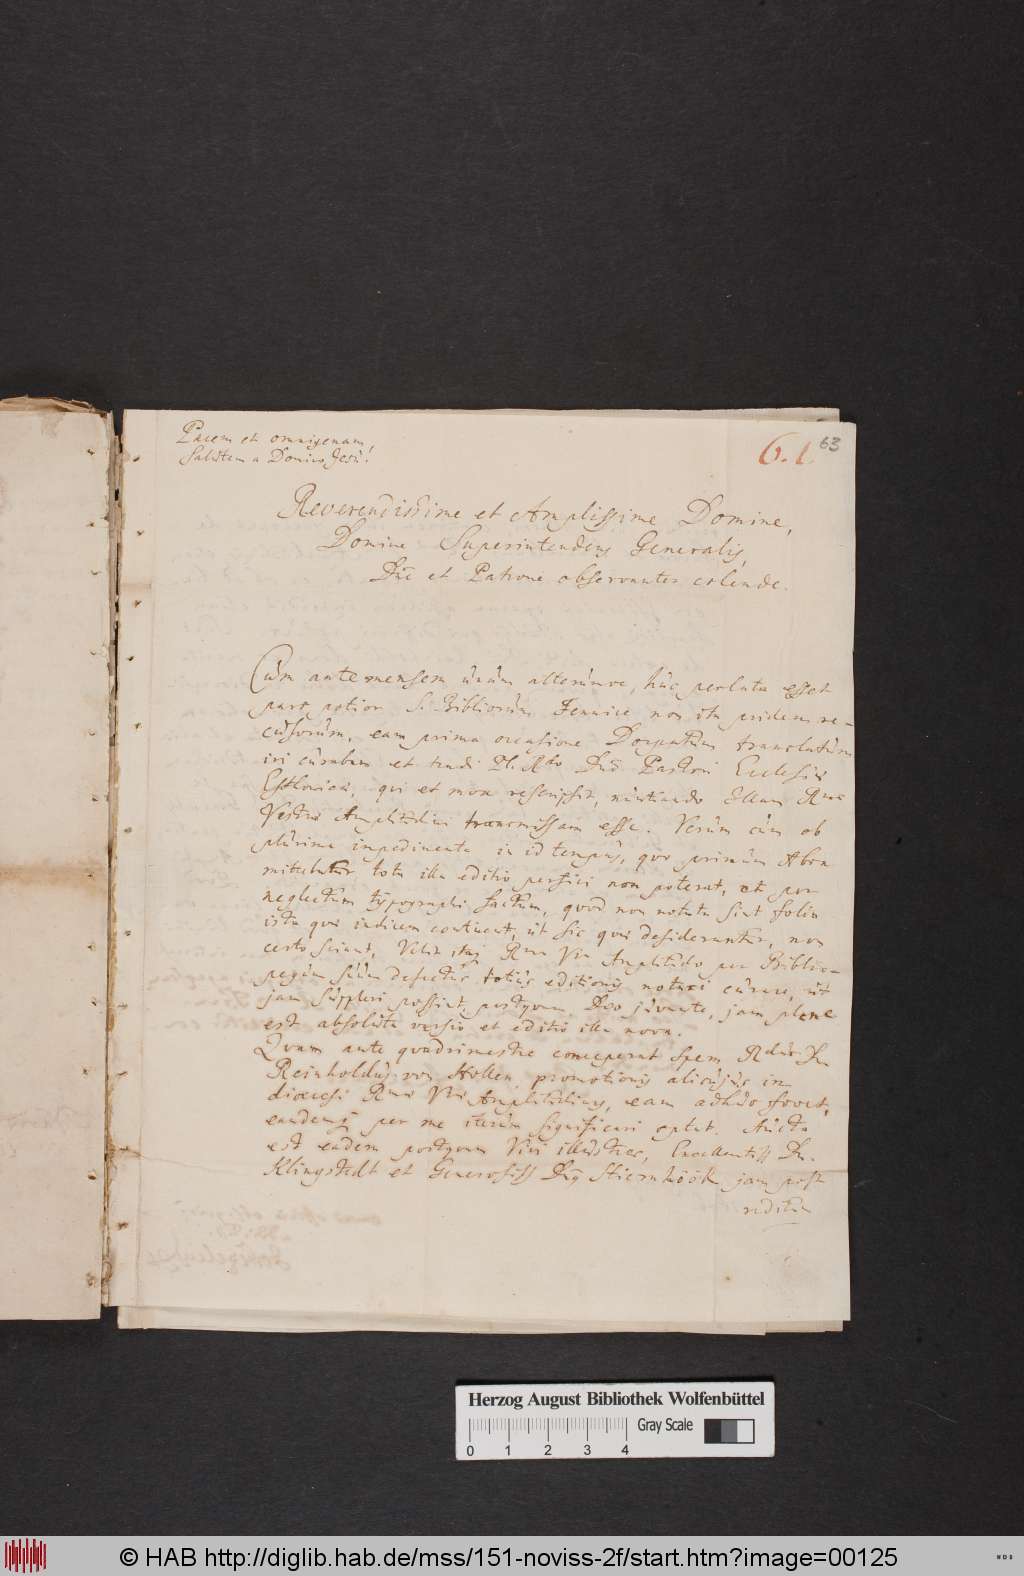 Pacem et omnigenam,
Salutem a Domino Jesu!
61.
63
Reverendissime et Amplissime Domine,
Domine Superintendens Generalis,
Dn̄e et Patrone observanter colende.
Cùm ante mensem ùnùm alterùmve, hùc perlata esset
pars potior S. Bibliorùm Fennice non ita pridem re-
cùsorùm, eam prima occasione Dorpatum translatùm
iri cùrabam et tradi Pl. Rdo Dno Pastori Ecclesiæ
Esthonicæ, qui et mox rescripsit, nùntiando Illam Rmæ
Vestræ Amplitùdini transmissam esse. Verùm cùm ob
plùrima impedimenta in id tempùs, quo primùm Aboa
mittebatur, tota illa editio perfici non poterat, et per
neglectum typographi factum, quod non notata sint folia
ista quæ indicem continent, ùt sic quæ desiderantùr, non
certo sciant, Velit itaq Rma Vra Amplitùdo per Biblio-
pegùm sùùm defectùs totiùs editionis notari cùrare, ùt
jam sùppleri possint, postquam Deo jùvante, jam plene
est absolùta versio et editio illa nova.
Quam ante quadrimestre conceperat spem Rdùs Dn
Reinholdùs von Hollen, promotionis alicùjùs in
diœcesi Rmæ Vræ Amplitùdinis, eam adhùc fovet,
eandemq per me iterùm significari optat. Aùcta
est eadem postquam Viri illùstres, Excellentiss Dn.
Klingstedt et Generosiss Dnus Stiernhöök jam post
reditùm
Herzog August Bibliothek Wolfenbüttel
Gray Scale
0 1 2 3 4
© HAB http://diglib.hab.de/mss/151-noviss-2f/start.htm?image=00125